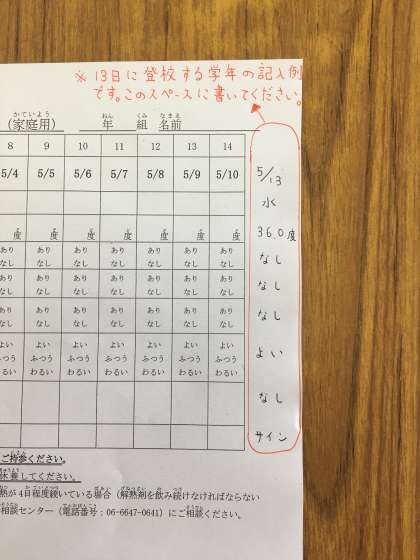 ※13日に登校する学年の記入例
です。このスペースに書いてください。
(家庭用) 年 組 名前
8 9 10 11 12 13 14
5/4 5/5 5/6 5/7 5/8 5/9 5/10 5/13
水
度 度 度 度 度 度 度 36.0度
あり あり あり あり あり あり あり
なし なし なし なし なし なし なし なし
あり あり あり あり あり あり あり
なし なし なし なし なし なし なし なし
あり あり あり あり あり あり あり
なし なし なし なし なし なし なし なし
よい よい よい よい よい よい よい
ふつう ふつう ふつう ふつう ふつう ふつう ふつう よい
わるい わるい わるい わるい わるい わるい わるい
なし
サイン
ご持参ください。
休養してください。
熱が4日程度続いている場合(解熱剤を飲み続けなければならない
相談センター(電話番号:06-6647-0641)にご相談ください。